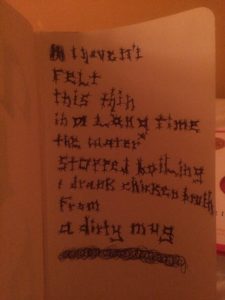 I haven't
FELT
this thin
in a Long time
the water
stopped boiling
I drank chicken broth
From
a dirty mug